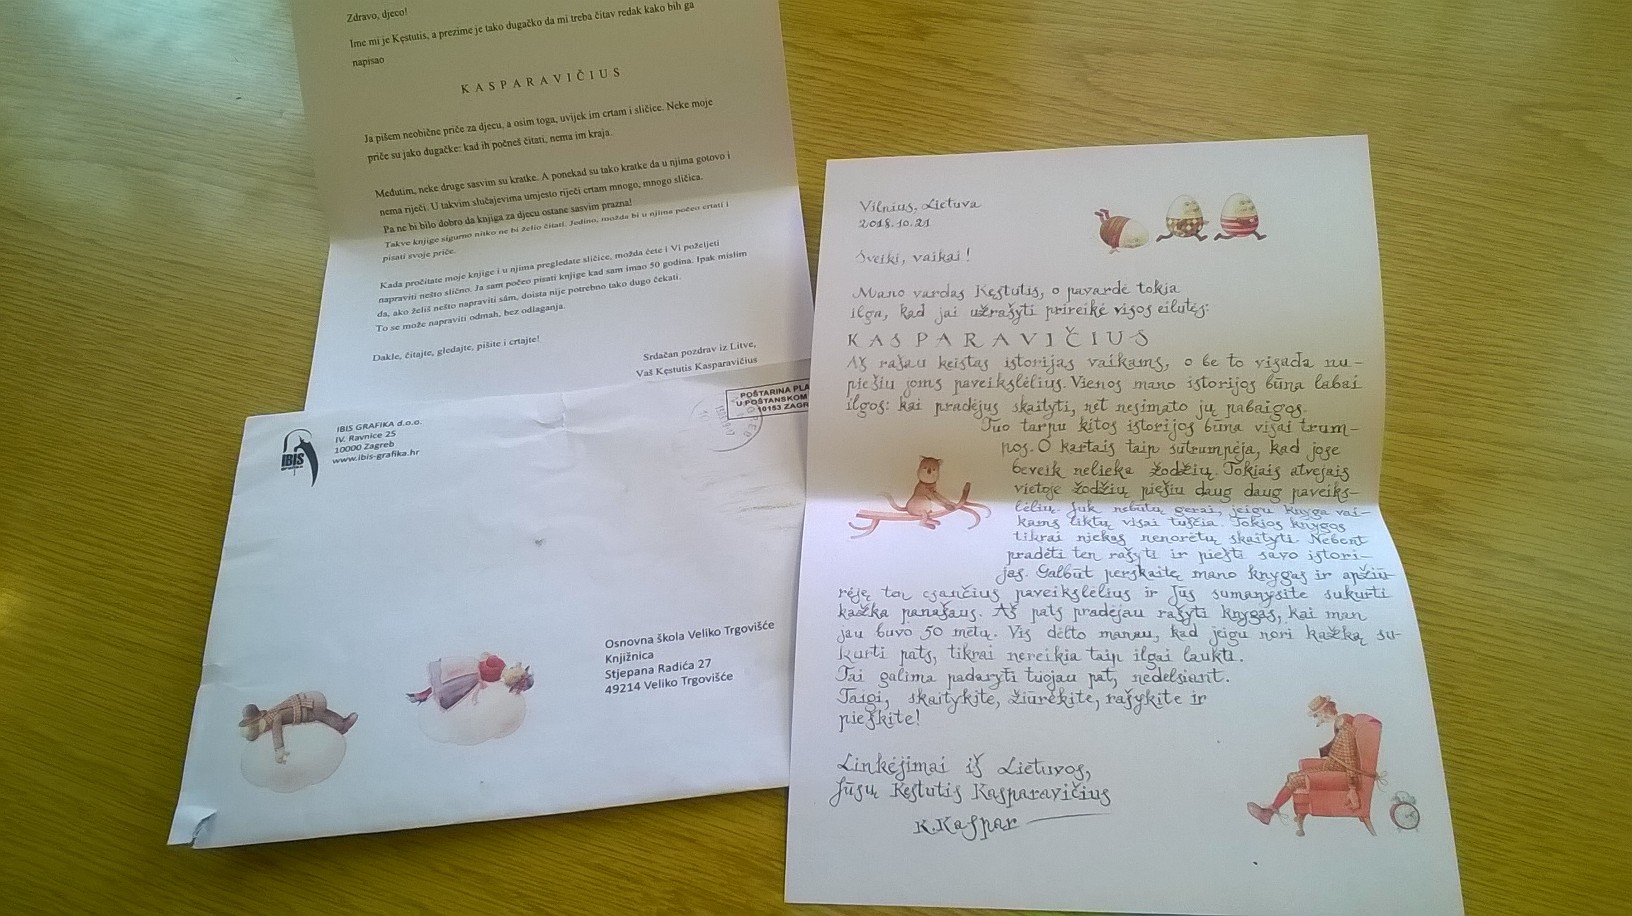 Zdravo, djeco!
Ime mi je Kęstutis, a prezime je tako dugačko da mi treba čitav redak kako bih ga
napisao
KASPARAVIČIUS
Ja pišem neobične priče za djecu, a osim toga, uvijek im crtam i sličice. Neke moje
priče su jako dugačke: kad ih počneš čitati, nema im kraja.
Međutim, neke druge sasvim su kratke. A ponekad su tako kratke da u njima gotovo i
nema riječi. U takvim slučajevima umjesto riječi crtam mnogo, mnogo sličica.
Pa ne bi bilo dobro da knjiga za djecu ostane sasvim prazna!
Takve knjige sigurno nitko ne bi želio čitati. Jedino, možda bi u njima počeo crtati i
pisati svoje priče.
Kada pročitate moje knjige i u njima pregledate sličice, možda ćete i Vi poželjeti
napraviti nešto slično. Ja sam počeo pisati knjige kad sam imao 50 godina. Ipak mislim
da, ako želiš nešto napraviti sâm, doista nije potrebno tako dugo čekati.
To se može napraviti odmah, bez odlaganja.
Dakle, čitajte, gledajte, pišite i crtajte!
Srdačan pozdrav iz Litve,
Vaš Kęstutis Kasparavičius
IBIS
IBIS GRAFIKA d.o.o.
IV. Ravnice 25
10000 Zagreb
www.ibis-grafika.hr
POŠTARINA PLA
U POŠTANSKOM
10153 ZAGR
Osnovna škola Veliko Trgovišće
Knjižnica
Stjepana Radića 27
49214 Veliko Trgovišće
Vilnius, Lietuva
2018.10.21
Sveiki, vaikai!
Mano vardas Kęstutis, o pavardė tokia
ilga, kad jai užrašyti prireikė visos eilutės:
KASPARAVIČIUS
Aš rašau keistas istorijas vaikams, o be to visada nu-
piešiu joms paveikslėlius. Vienos mano istorijos būna labai
ilgos: kai pradėjus skaityti, net nesimato jų pabaigos.
Tuo tarpu kitos istorijos būna visai trum-
pos. O kartais taip sutrumpėja, kad jose
beveik nelieka žodžių. Tokiais atvejais
vietoje žodžių piešiu daug daug paveiks-
lėlių. Juk nebūtų gerai, jeigu knyga vai-
kams liktų visai tuščia. Tokios knygos
tikrai niekas nenorėtų skaityti. Nebent
pradėti ten rašyti ir piešti savo istori-
jas. Galbūt perskaitę mano knygas ir apžiū-
rėję ten esančius paveikslėlius ir Jūs sumanysite sukurti
kažką panašaus. Aš pats pradėjau rašyti knygas, kai man
jau buvo 50 metų. Vis dėlto manau, kad jeigu nori kažką su-
kurti pats, tikrai nereikia taip ilgai laukti.
Tai galima padaryti tuojau pat, nedelsiant.
Taigi, skaitykite, žiūrėkite, rašykite ir
pieškite!
Linkėjimai iš Lietuvos,
Jūsų Kęstutis Kasparavičius
K.Kaspar